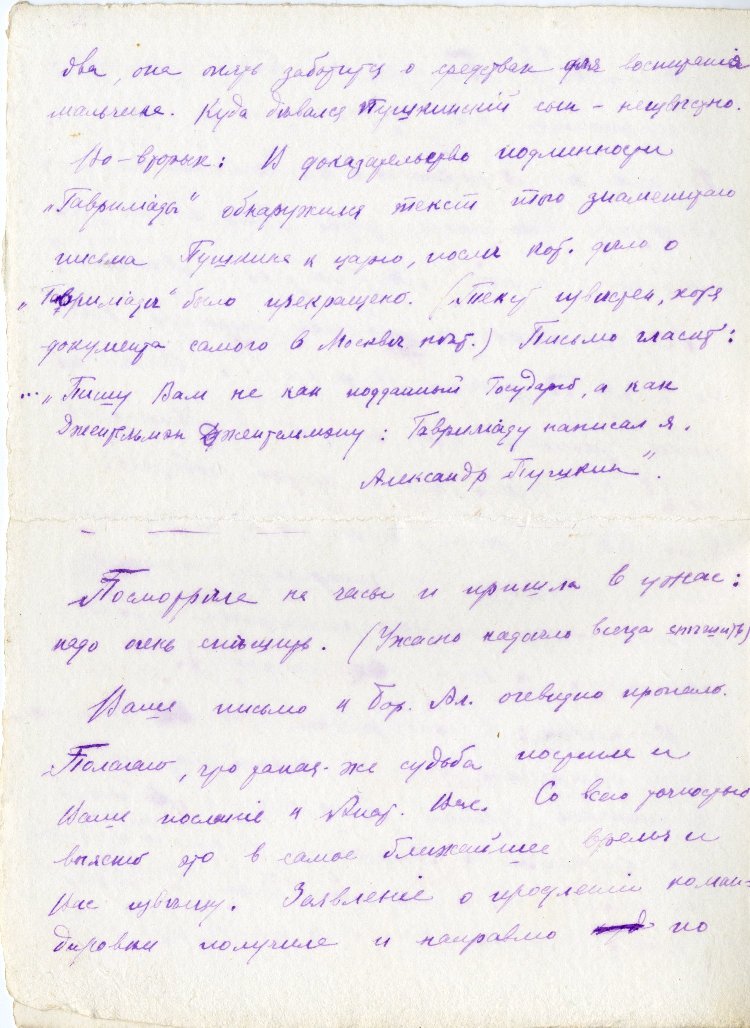 два, она опять заботится о средствах для воспитанія
мальчика. Куда дѣвался Пушкинскій сын – неизвѣстно.
Во-вторых: В доказательство подлинности
„Гавриліады“ обнаружился текст того знаменитаго
письма Пушкина к царю, послѣ кот. дѣло о
„Гавриліадѣ“ было прекращено. (Текст извѣстен, хотя
документа самого в Москвѣ нѣт.) Письмо гласит:
... „Пишу Вам не как подданный Государю, а как
Джентльмэн Джентельмэну: Гавриліаду написал я.
Александр Пушкин“.
Посмотрѣла на часы и пришла в ужас:
надо очень спѣшить. (Ужасно надоѣло всегда спѣшить)
Ваше письмо к Бор. Ал. очевидно пропало.
Полагаю, что такая-же судьба постигла и
Ваше посланіе к Анат. Вас. Со всею точностью
выясню это в самое ближайшее время и
Вас извѣщу. Заявленіе о продленіи коман-
дировки получила и направлю по